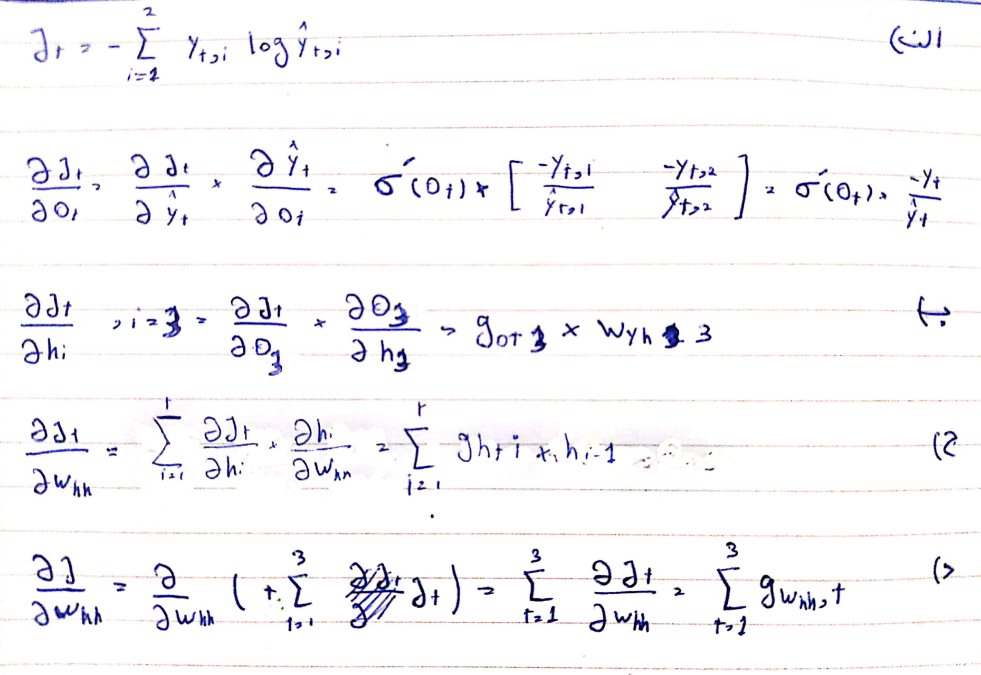 الف) J_t = - Σ_{i=1}^{2} y_{t,i} log ŷ_{t,i}
∂J_t/∂O_t = ∂J_t/∂ŷ_t × ∂ŷ_t/∂O_t = σ'(O_t) * [ -y_{t,1}/ŷ_{t,1}  -y_{t,2}/ŷ_{t,2} ] = σ'(O_t) * -y_t/ŷ_t
ب) ∂J_t/∂h_i , i=3 = ∂J_t/∂O_3 × ∂O_3/∂h_3 = g_{ot 3} × W_{yh} 3
ج) ∂J_t/∂W_{hh} = Σ_{i=1}^{t} ∂J_t/∂h_i · ∂h_i/∂W_{hh} = Σ_{i=1}^{t} g_{hti} × h_{i-1}
د) ∂J/∂W_{hh} = ∂/∂W_{hh} ( + Σ_{t=1}^{3} J_t ) = Σ_{t=1}^{3} ∂J_t/∂W_{hh} = Σ_{t=1}^{3} g_{W_{hh},t}